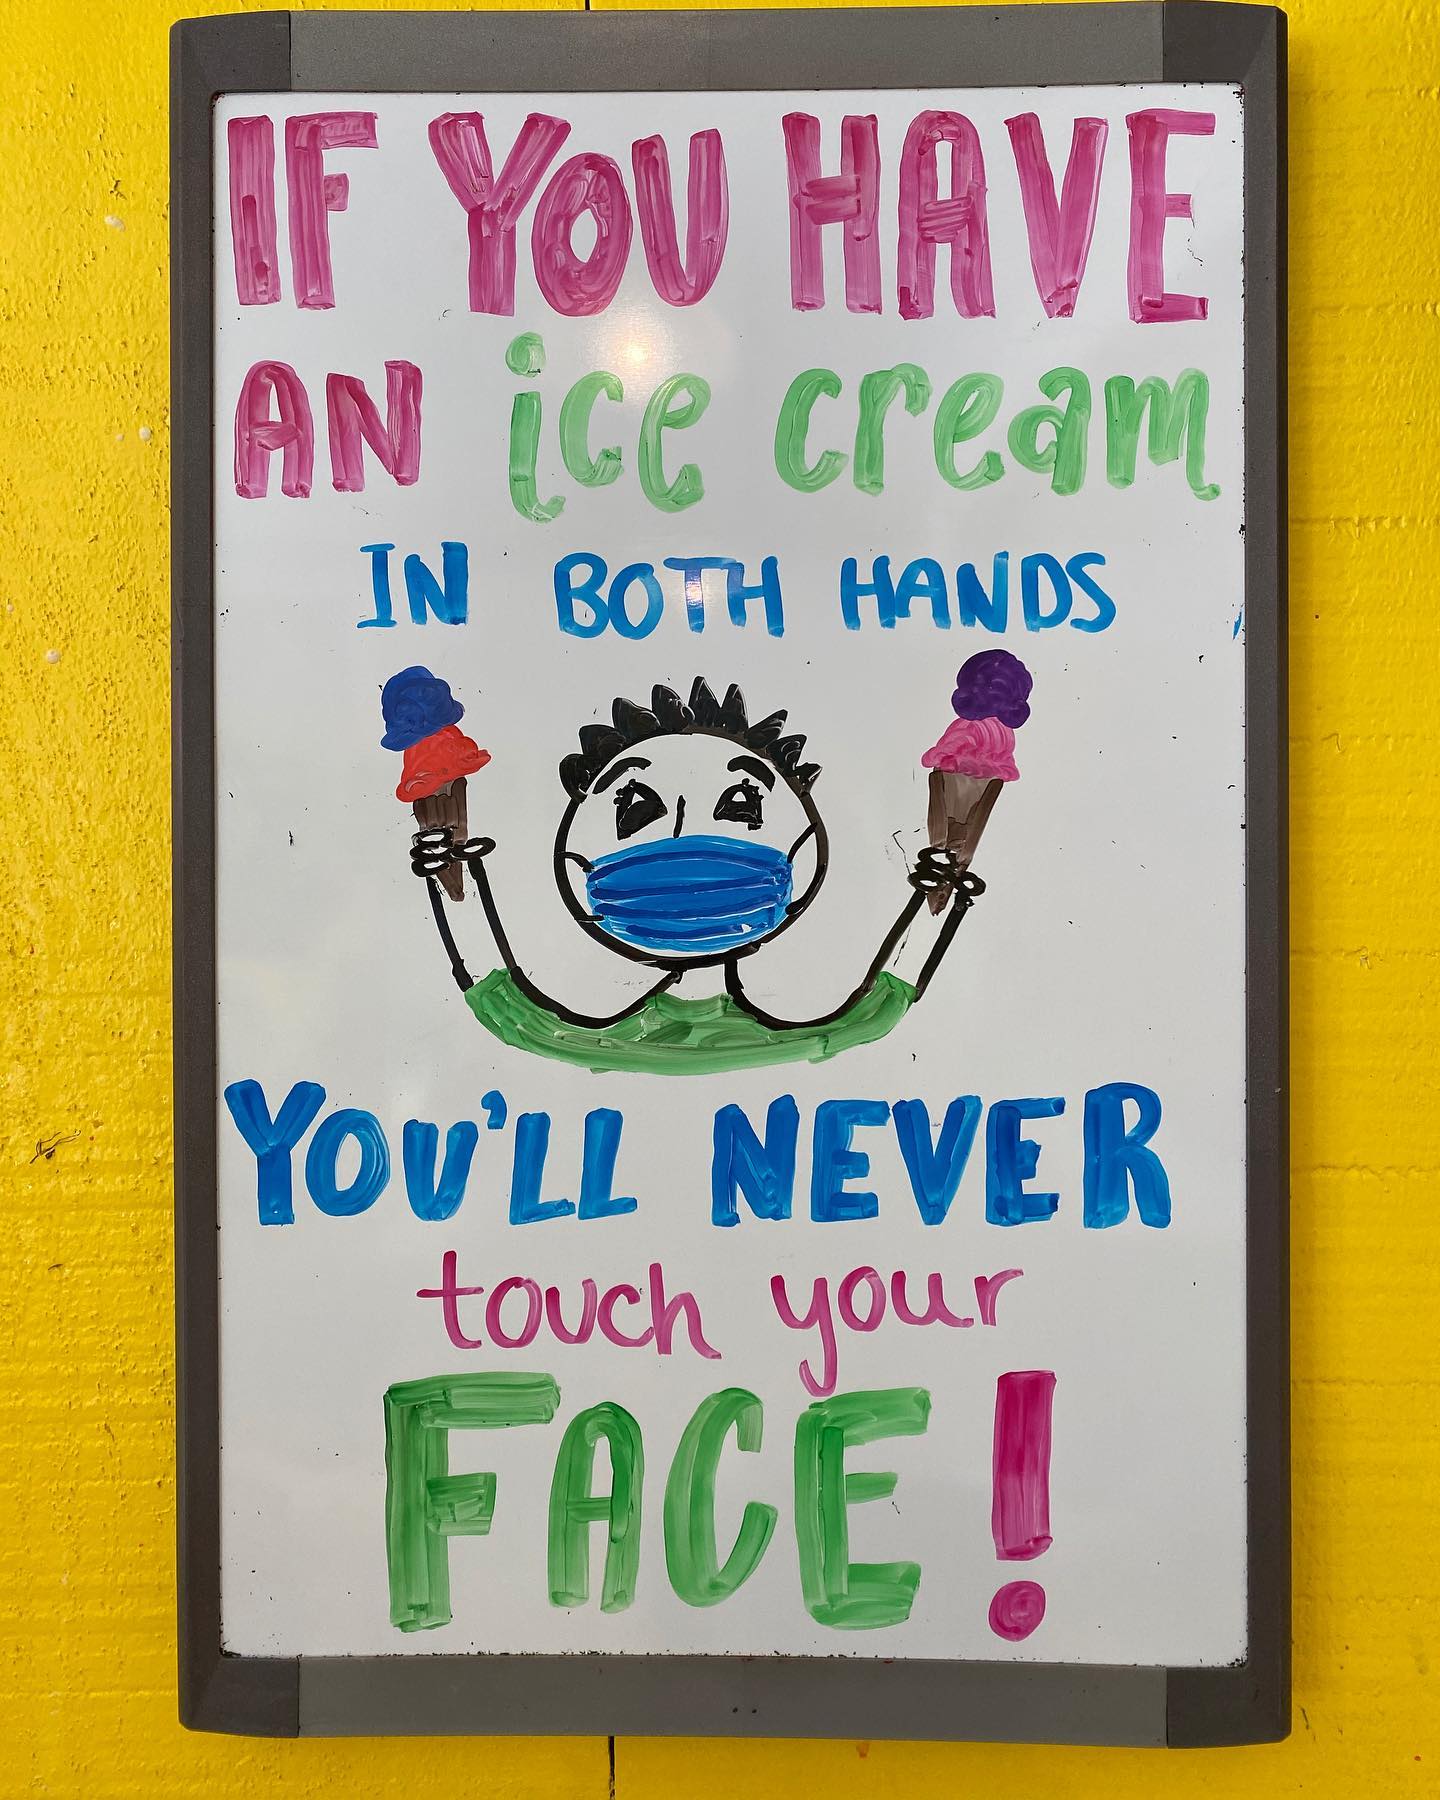 IF YOU HAVE
AN ice cream
IN BOTH HANDS
YOU'LL NEVER
touch your
FACE!